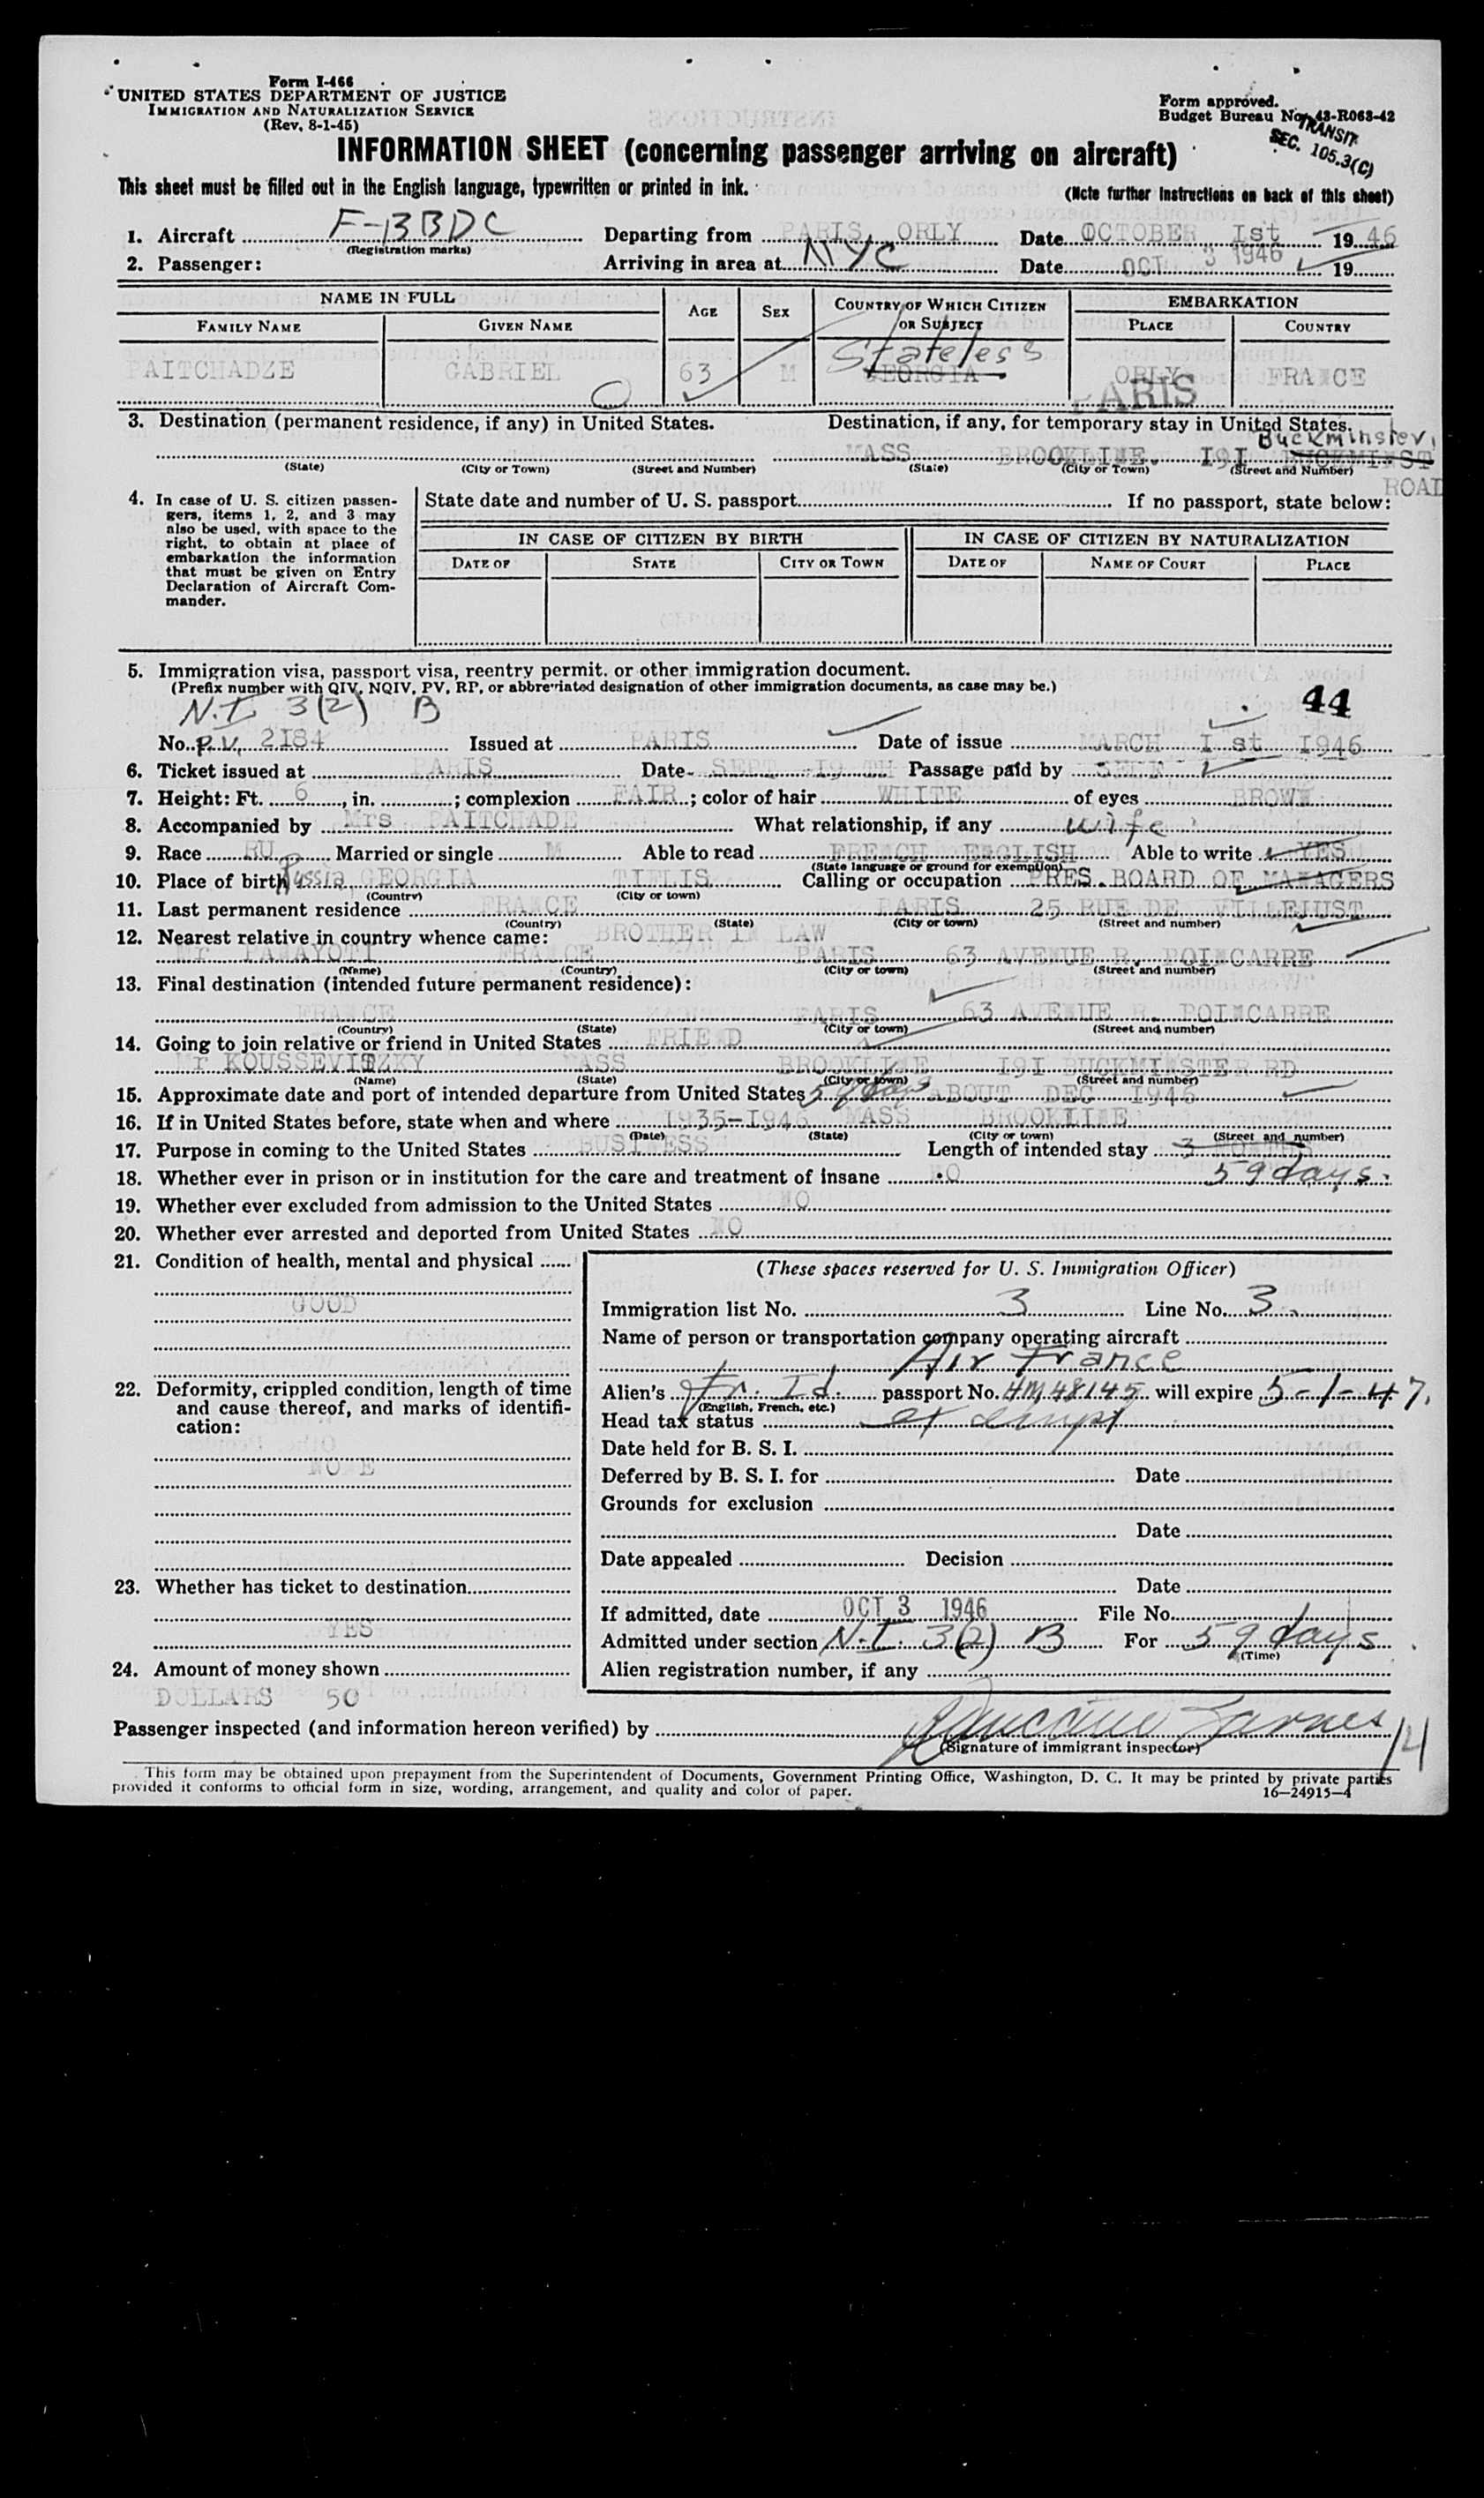 Form I-466
UNITED STATES DEPARTMENT OF JUSTICE
IMMIGRATION AND NATURALIZATION SERVICE
(Rev. 8-1-45)
Form approved.
Budget Bureau No. 43-R063-42
TRANSIT
SEC. 105.3(C)
INFORMATION SHEET (concerning passenger arriving on aircraft)
This sheet must be filled out in the English language, typewritten or printed in ink.
(Note further instructions on back of this sheet)
1. Aircraft F-BBDC Departing from PARIS ORLY Date OCTOBER Ist 1946
(Registration marks)
2. Passenger: Arriving in area at NYC Date OCT 3 1946 19
NAME IN FULL AGE SEX COUNTRY OF WHICH CITIZEN OR SUBJECT EMBARKATION
FAMILY NAME GIVEN NAME PLACE COUNTRY
Stateless
PAITCHADZE GABRIEL 63 M GEORGIA ORLY FRANCE
PARIS
3. Destination (permanent residence, if any) in United States. Destination, if any, for temporary stay in United States.
Buckminster,
MASS BROOKLINE. I9I BUCKMINST
(State) (City or Town) (Street and Number) (State) (City or Town) (Street and Number)
ROAD
4. In case of U. S. citizen passengers, items 1, 2, and 3 may also be used, with space to the right, to obtain at place of embarkation the information that must be given on Entry Declaration of Aircraft Commander.
State date and number of U. S. passport If no passport, state below:
IN CASE OF CITIZEN BY BIRTH IN CASE OF CITIZEN BY NATURALIZATION
DATE OF STATE CITY OR TOWN DATE OF NAME OF COURT PLACE
5. Immigration visa, passport visa, reentry permit, or other immigration document.
(Prefix number with QIV, NQIV, PV, RP, or abbreviated designation of other immigration documents, as case may be.)
N.I. 3(2) B
44
No. P.V. 2I84 Issued at PARIS Date of issue MARCH I st I946
6. Ticket issued at PARIS Date SEPT I9 TH Passage paid by SELF
7. Height: Ft. 6, in. ; complexion FAIR; color of hair WHITE of eyes BROWN
8. Accompanied by Mrs PAITCHADE What relationship, if any wife
9. Race RU Married or single M Able to read FRENCH ENGLISH Able to write YES
(State language or ground for exemption)
10. Place of birth Russia GEORGIA TIFLIS Calling or occupation PRES. BOARD OF MANAGERS
(Country) (City or town)
11. Last permanent residence FRANCE PARIS 25 RUE DE VILLEJUST
(Country) (State) (City or town) (Street and number)
12. Nearest relative in country whence came: BROTHER IN LAW
Mr PANAYOTI FRANCE PARIS 63 AVENUE R. POINCARRE
(Name) (Country) (City or town) (Street and number)
13. Final destination (intended future permanent residence):
FRANCE PARIS 63 AVENUE R. POINCARRE
(Country) (State) (City or town) (Street and number)
14. Going to join relative or friend in United States FRIEND
Mr KOUSSEVITZKY MASS BROOKLINE I9I BUCKMINSTER RD
(Name) (State) (City or town) (Street and number)
15. Approximate date and port of intended departure from United States 59 days ABOUT DEC I946
16. If in United States before, state when and where I935-I946 MASS BROOKLINE
(Date) (State) (City or town) (Street and number)
17. Purpose in coming to the United States BUSINESS Length of intended stay 3 MONTHS
18. Whether ever in prison or in institution for the care and treatment of insane NO 59 days.
19. Whether ever excluded from admission to the United States NO
20. Whether ever arrested and deported from United States NO
21. Condition of health, mental and physical
GOOD
22. Deformity, crippled condition, length of time and cause thereof, and marks of identification:
NONE
23. Whether has ticket to destination
YES
24. Amount of money shown
DOLLARS 50
(These spaces reserved for U. S. Immigration Officer)
Immigration list No. 3 Line No. 3
Name of person or transportation company operating aircraft
Air France
Alien's Fr. Id. passport No. 4M48145 will expire 5-1-47.
(English, French, etc.)
Head tax status exempt
Date held for B. S. I.
Deferred by B. S. I. for Date
Grounds for exclusion
Date
Date appealed Decision
Date
If admitted, date OCT 3 1946 File No.
Admitted under section N.I. 3(2) B For 59 days
(Time)
Alien registration number, if any
Passenger inspected (and information hereon verified) by
(Signature of immigrant inspector)
14
This form may be obtained upon prepayment from the Superintendent of Documents, Government Printing Office, Washington, D. C. It may be printed by private parties
provided it conforms to official form in size, wording, arrangement, and quality and color of paper.
16—24915-4